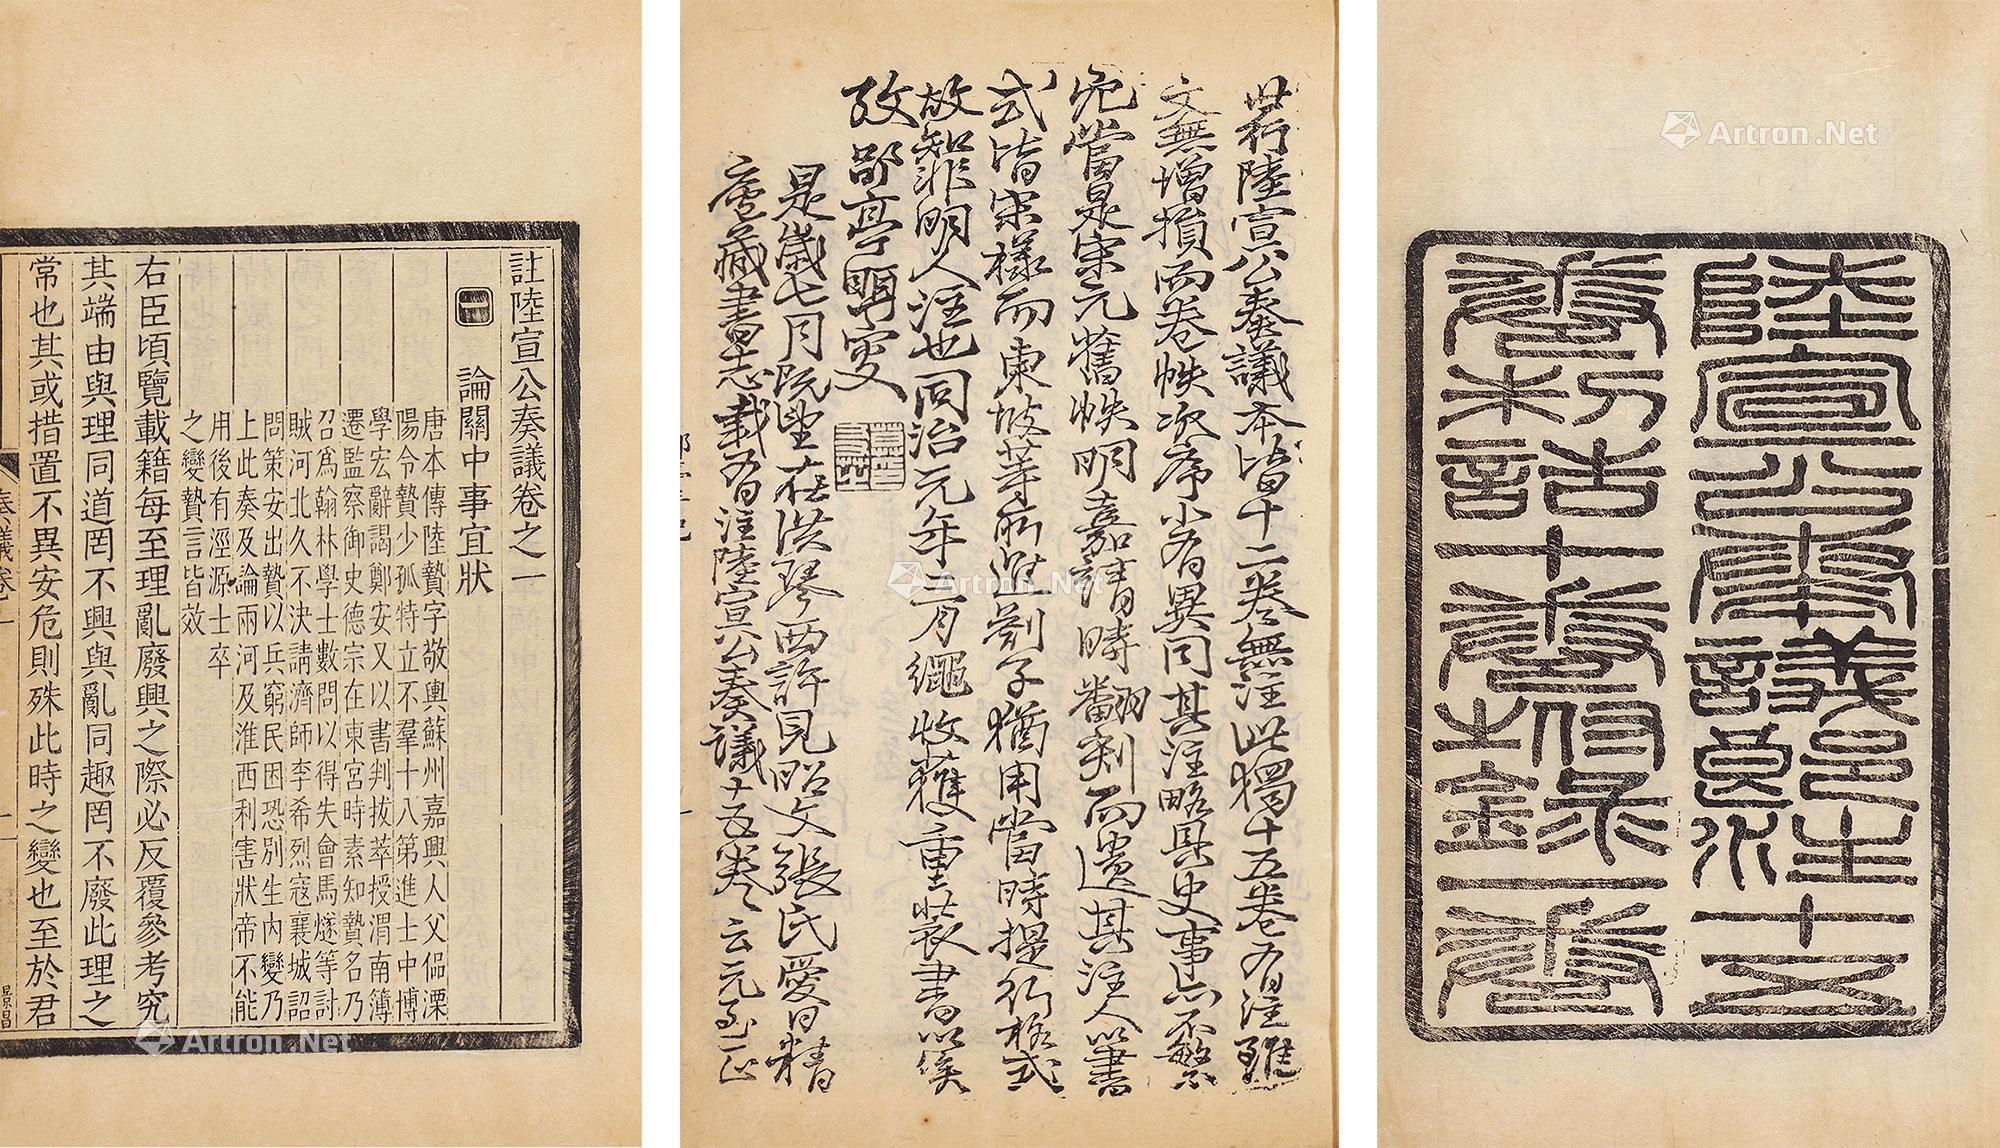 陸宣公奏議注十五
卷制誥十卷附錄一卷
世行陸宣公奏議本皆十二卷無注此獨十五卷有注雖
文無增損而卷帙次序小有異同其注略具史事亦不繁
冗當是宋元舊帙明嘉靖時翻刻而遺其注人以書
式皆宋樣而東坡等所進劄子猶用當時提行格式
故知非明人注也同治元年二月繩收獲重裝書以俟
攷郘亭眲叟
是歲七月既望在洪琴西許見昭文張氏愛日精
廬藏書志載有注陸宣公奏議十五卷云元至正
註陸宣公奏議卷之一
論關中事宜狀
唐本傳陸贄字敬輿蘇州嘉興人父偘溧
陽令贄少孤特立不羣十八第進士中博
學宏辭謁鄭安又以書判拔萃授渭南簿
遷監察御史德宗在東宮時素知贄名乃
召為翰林學士數問以得失會馬燧等討
賊河北久不決請濟師李希烈寇襄城詔
問策安出贄以兵窮民困恐別生內變乃
上此奏及論兩河及淮西利害狀帝不能
用後有涇源士卒
之變贄言皆效
右臣頃覽載籍每至理亂廢興之際必反覆參考究
其端由與理同道罔不興與亂同趣罔不廢此理之
常也其或措置不異安危則殊此時之變也至於君
奏議卷一
一
景昌
Artron.Net
Artron.Net
Artron.Net